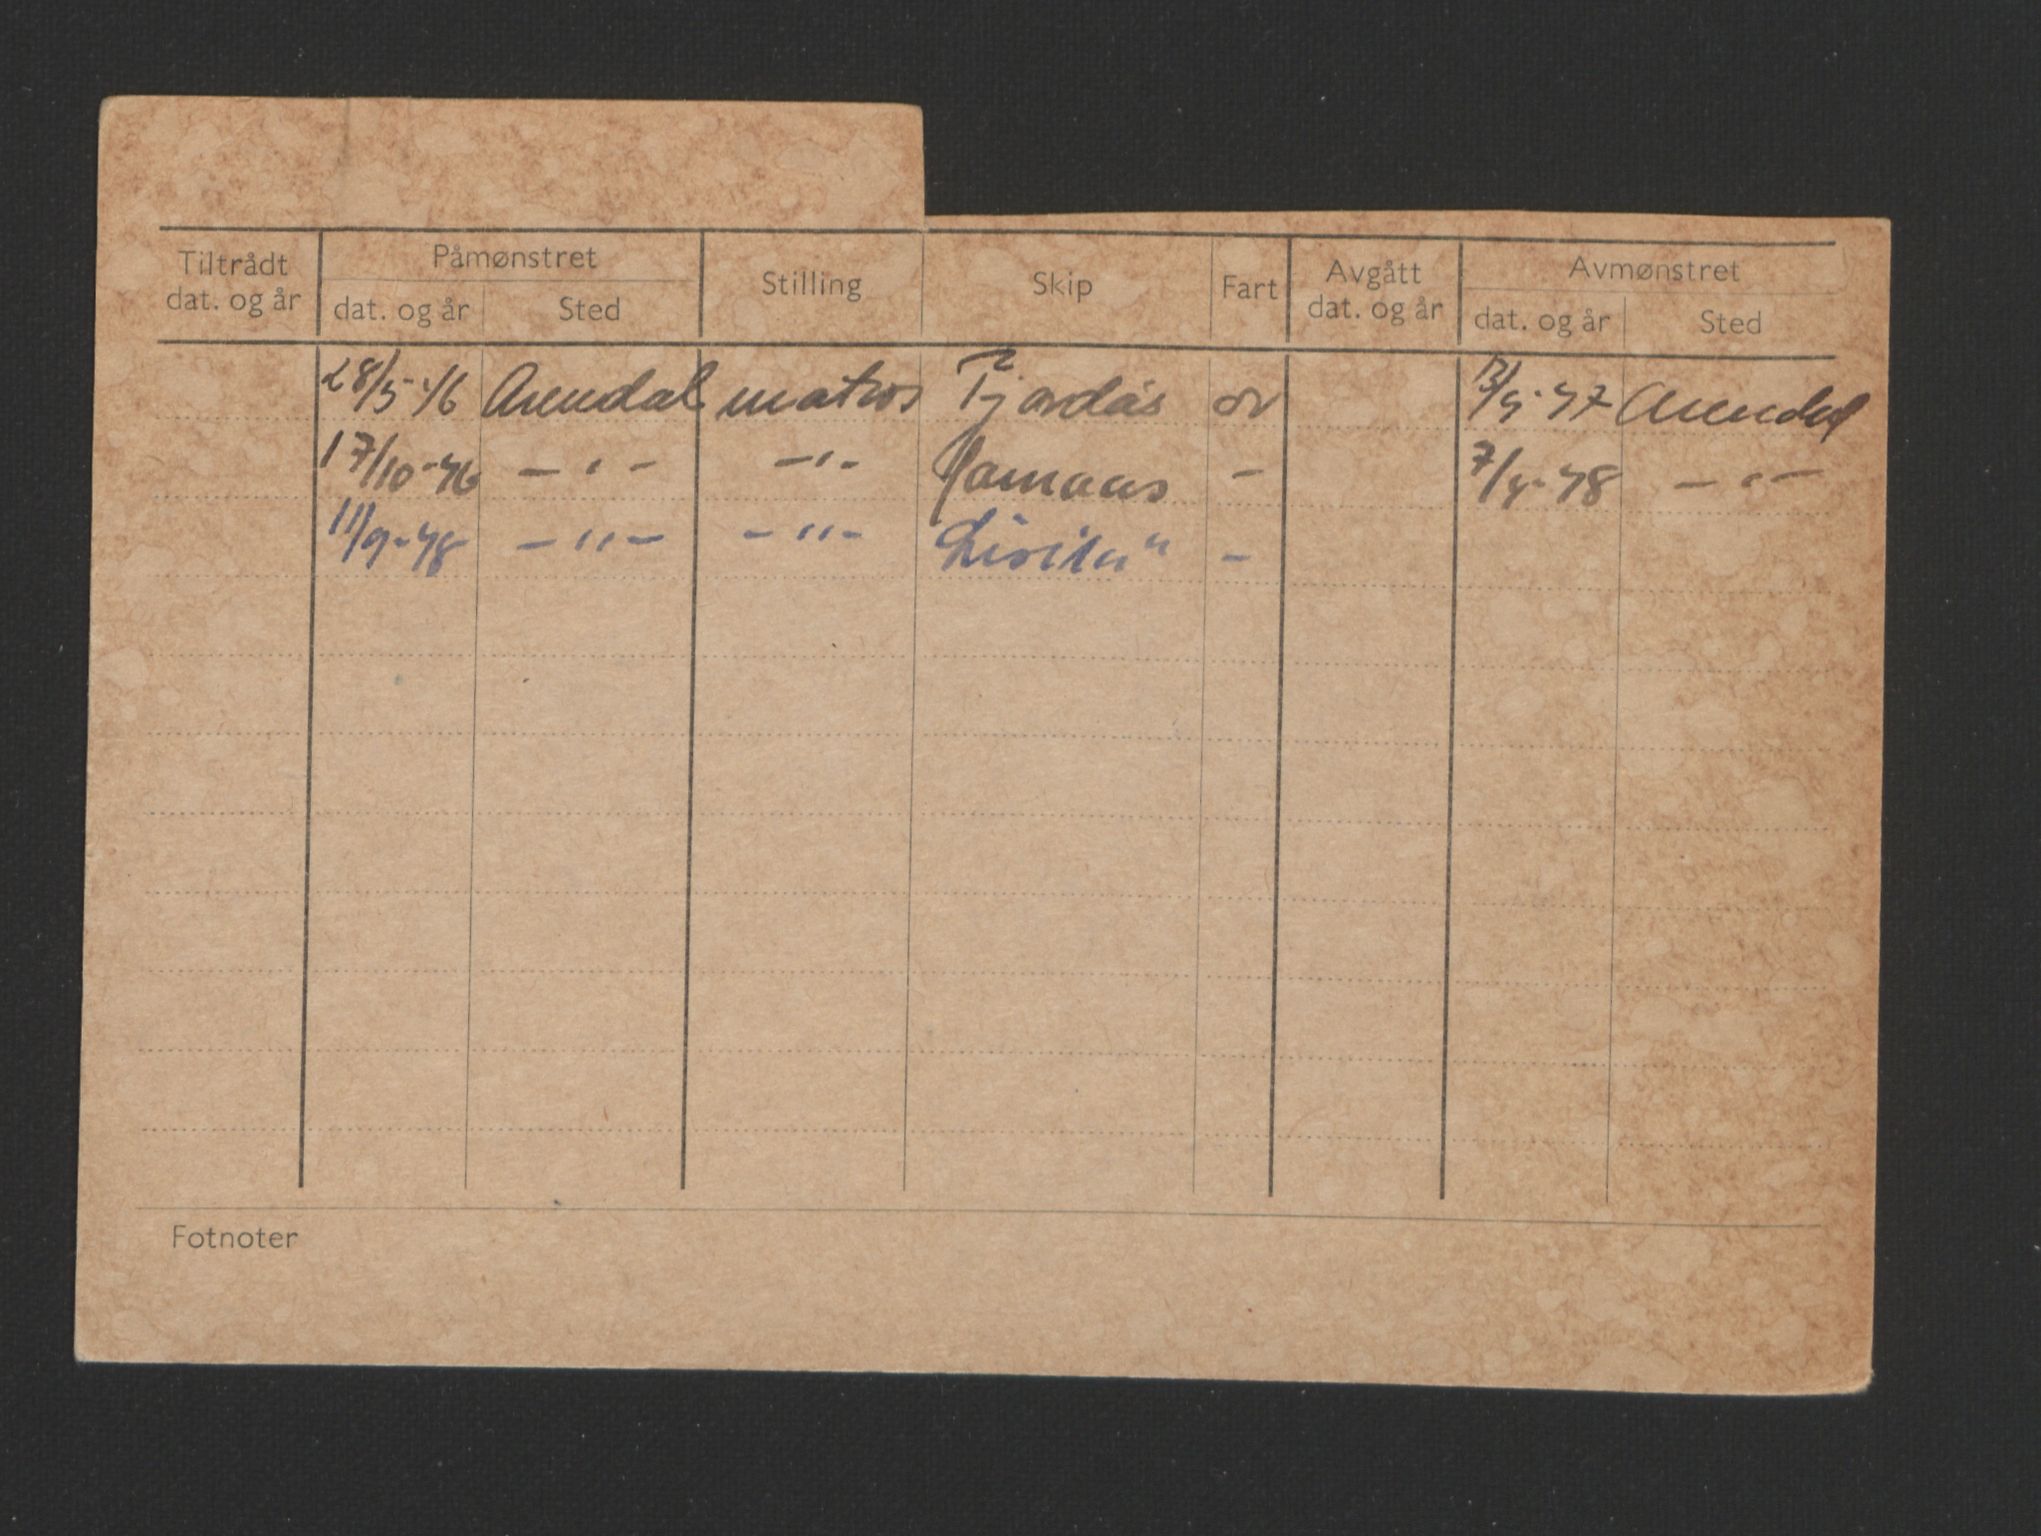 Tiltrådt dat. og år Påmønstret dat. og år Sted Stilling Skip Fart Avgått dat. og år Avmønstret dat. og år Sted
28/5-46 Arendal matros Tjordås ov 47 Arendal
17/10-46 — " — — " — Jamaas - 7/4-48 — " —
11/9-48 — " — — " — -
Fotnoter